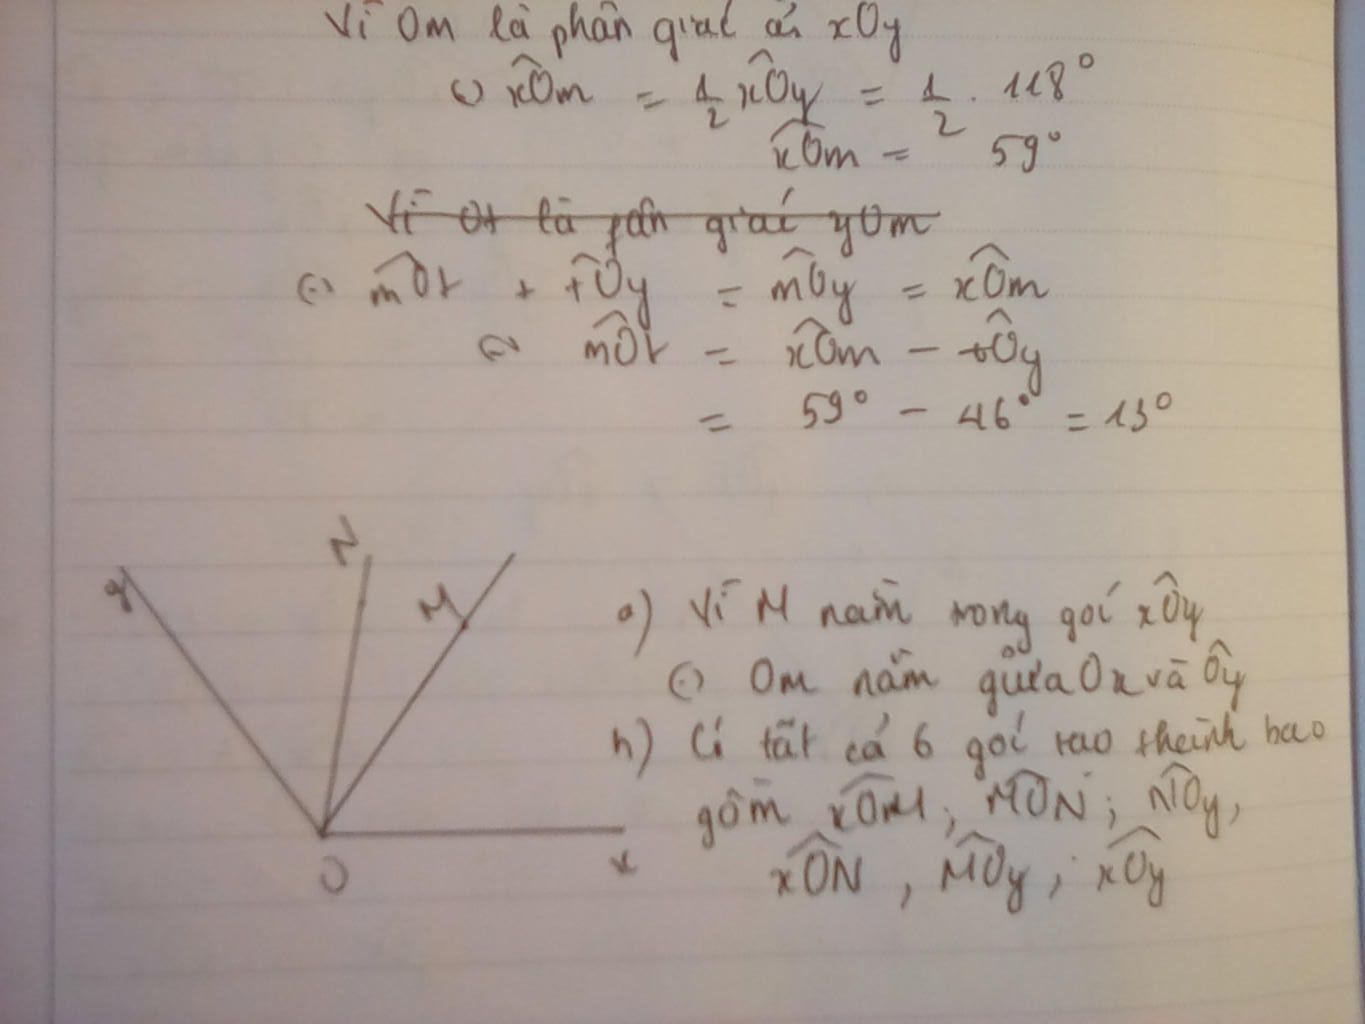 Vì Om là phân giác củ xOy
(=) xÔm = 1/2 xÔy = 1/2 . 118°
xÔm = 59°
Vì Ot là pân giác yOm
(=) mÔt + tÔy = mÔy = xÔm
(=) mÔt = xÔm - tÔy
= 59° - 46° = 13°
N
y
M
O
x
a) Vì M nằm trong góc xÔy
(=) Om nằm giữa Ox và Ôy
b) Có tất cả 6 góc tạo thành bao
gồm xÔM; MÔN; NÔy,
xÔN, MÔy; xÔy